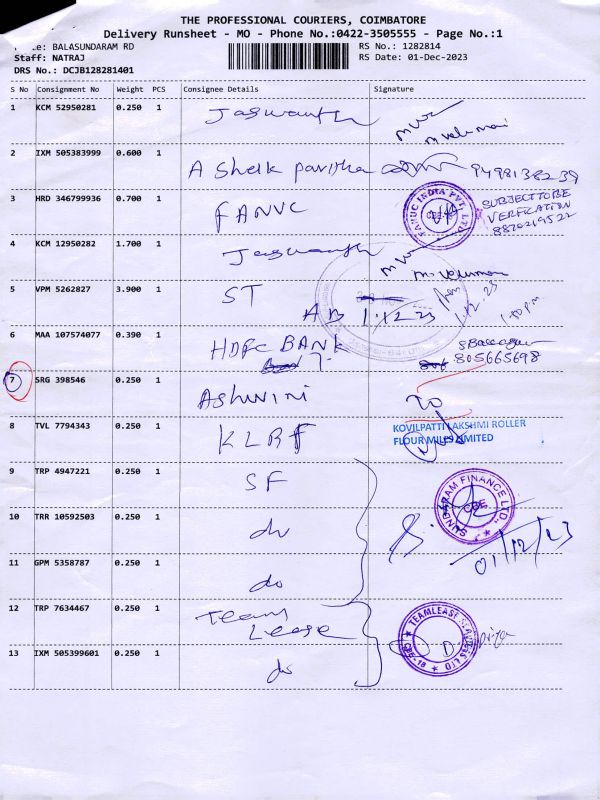 THE PROFESSIONAL COURIERS, COIMBATORE
Delivery Runsheet - MO - Phone No.:0422-3505555 - Page No.:1
BALASUNDARAM RD
RS No.: 1282814
Staff: NATRAJ
RS Date: 01-Dec-2023
DRS No.: DCJB128281401
S No Consignment No Weight PCS Consignee Details Signature
1 KCM 52950281 0.250 1 Jaswanth
2 IXM 505383999 0.600 1 A Sheik 9498138239
3 HRD 346799936 0.700 1 FANUC
FANUC INDIA PVT. LTD.
SUBJECT TO BE
VERFICATION
8870219522
4 KCM 12950282 1.700 1 Jaswanth
5 VPM 5262827 3.900 1 ST
1.12.23
6 MAA 107574077 0.390 1 HDFC BANK
805665698
7 SRG 398546 0.250 1 Ashwini
8 TVL 7794343 0.250 1 KLRF
KOVILPATTI LAKSHMI ROLLER
FLOUR MILLS LIMITED
9 TRP 4947221 0.250 1 SF
SUNDARAM FINANCE LTD.
CBE
10 TRR 10592503 0.250 1 do
01/12/23
11 GPM 5358787 0.250 1 do
12 TRP 7634467 0.250 1 Team
Lease
TEAMLEASE SERVICES LTD
CBE-18
13 IXM 505399601 0.250 1 do